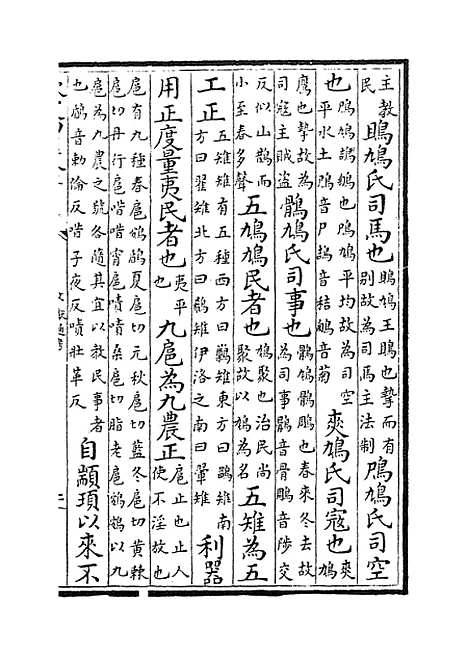 主教民鴡鳩氏司馬也鴡鳩王鴡也摯而有别故為司馬主法制鳲鳩氏司空
也鳲鳩鴶鵴也鳲鳩平均故為司空平水土鳲音尸鴶音秸鵴音菊爽鳩氏司寇也爽鳩
鷹也摯故為司寇主賊盜鶻鳩氏司事也鶻鳩鶻鵰也春來冬去故為司事鶻音骨鵰音陟交
反似山鵲而小至春多聲五鳩鳩民者也鳩聚也治民尚聚故以鳩為名五雉為五
工正五雉雉有五種西方曰鷷雉東方曰鶅雉南方曰翟雉北方曰鵗雉伊洛之南曰翬雉利器
用正度量夷民者也夷平也九扈為九農正扈止也止人使不淫放也
扈有九種春扈鳻鶞夏扈切元秋扈切藍冬扈切黄棘扈切丹行扈唶唶宵扈嘖嘖桑扈切脂老扈鷃鷃以九
扈為九農之號各隨其宜以教民事者也鶞音勅倫反唶子夜反嘖壯革反自顓頊以來不